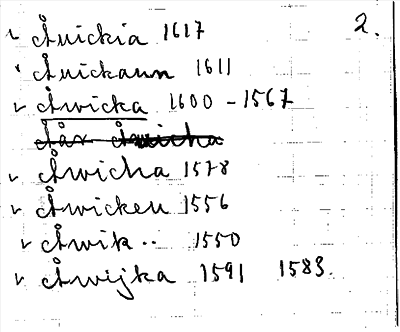 2.
v Åuickia 1617
v Åuickann 1611
v Åwicka 1600 - 1567
Åår Åwicha
v Åwicha 1578
v Åwicken 1556
v Åwik.. 1550
v Åwijka 1591 1583.